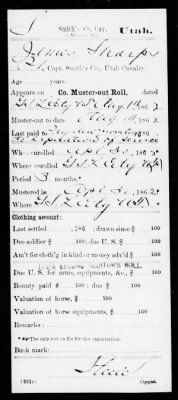 S | Smith's Co., Cav. | Utah.
James Sharp
Capt. Smith's Co., Utah Cavalry.
Age years.
Appears on Co. Muster-out Roll,
G S L City U T, Aug 14, 1862
Muster-out to date Aug 14, 186
Last paid to 186
Expiration of service
When enrolled Apl 30, 1862
Where enrolled G S L City U T
Period 3 months.
Mustered in Apl 30, 1862
Where G S L City U T
Clothing account:
Last settled , 186 ; drawn since $ 100
Due soldier $ 100; due U. S. $ 100
Am't for cloth'g in kind or money adv'd $ 100
Due U. S. for arms, equipments, &c., $ 100
Bounty paid $ 100; due $ 100
Valuation of horse, $ 100
Valuation of horse equipments, $ 100
Remarks:
*The only roll on file for this organization.
Book mark:
(361c) Copyist.